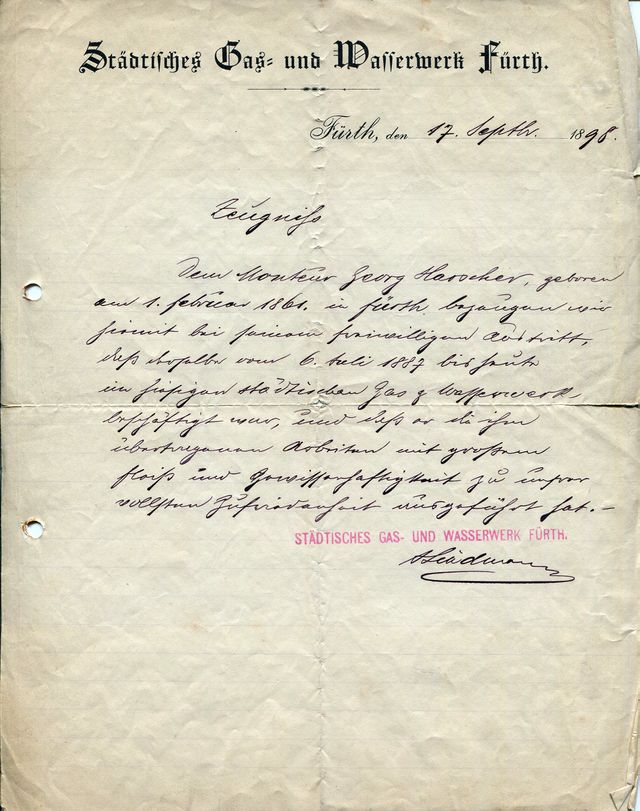 Städtisches Gas- und Wasserwerk Fürth.
Fürth, den 17. Septbr. 1898.
Zeugniss
Dem Monteur Georg Harscher, geboren
am 1. Februar 1861. in Fürth bezeugen wir
hiermit bei seinem freiwilligen Austritt,
daß derselbe vom 6. Juli 1887 bis heute
im hiesigen städtischen Gas & Wasserwerk
beschäftigt war, und daß er die ihm
übertragenen Arbeiten mit großem
Fleiß und Gewissenhaftigkeit zu unsrer
vollsten Zufriedenheit ausgeführt hat.-
STÄDTISCHES GAS- UND WASSERWERK FÜRTH.